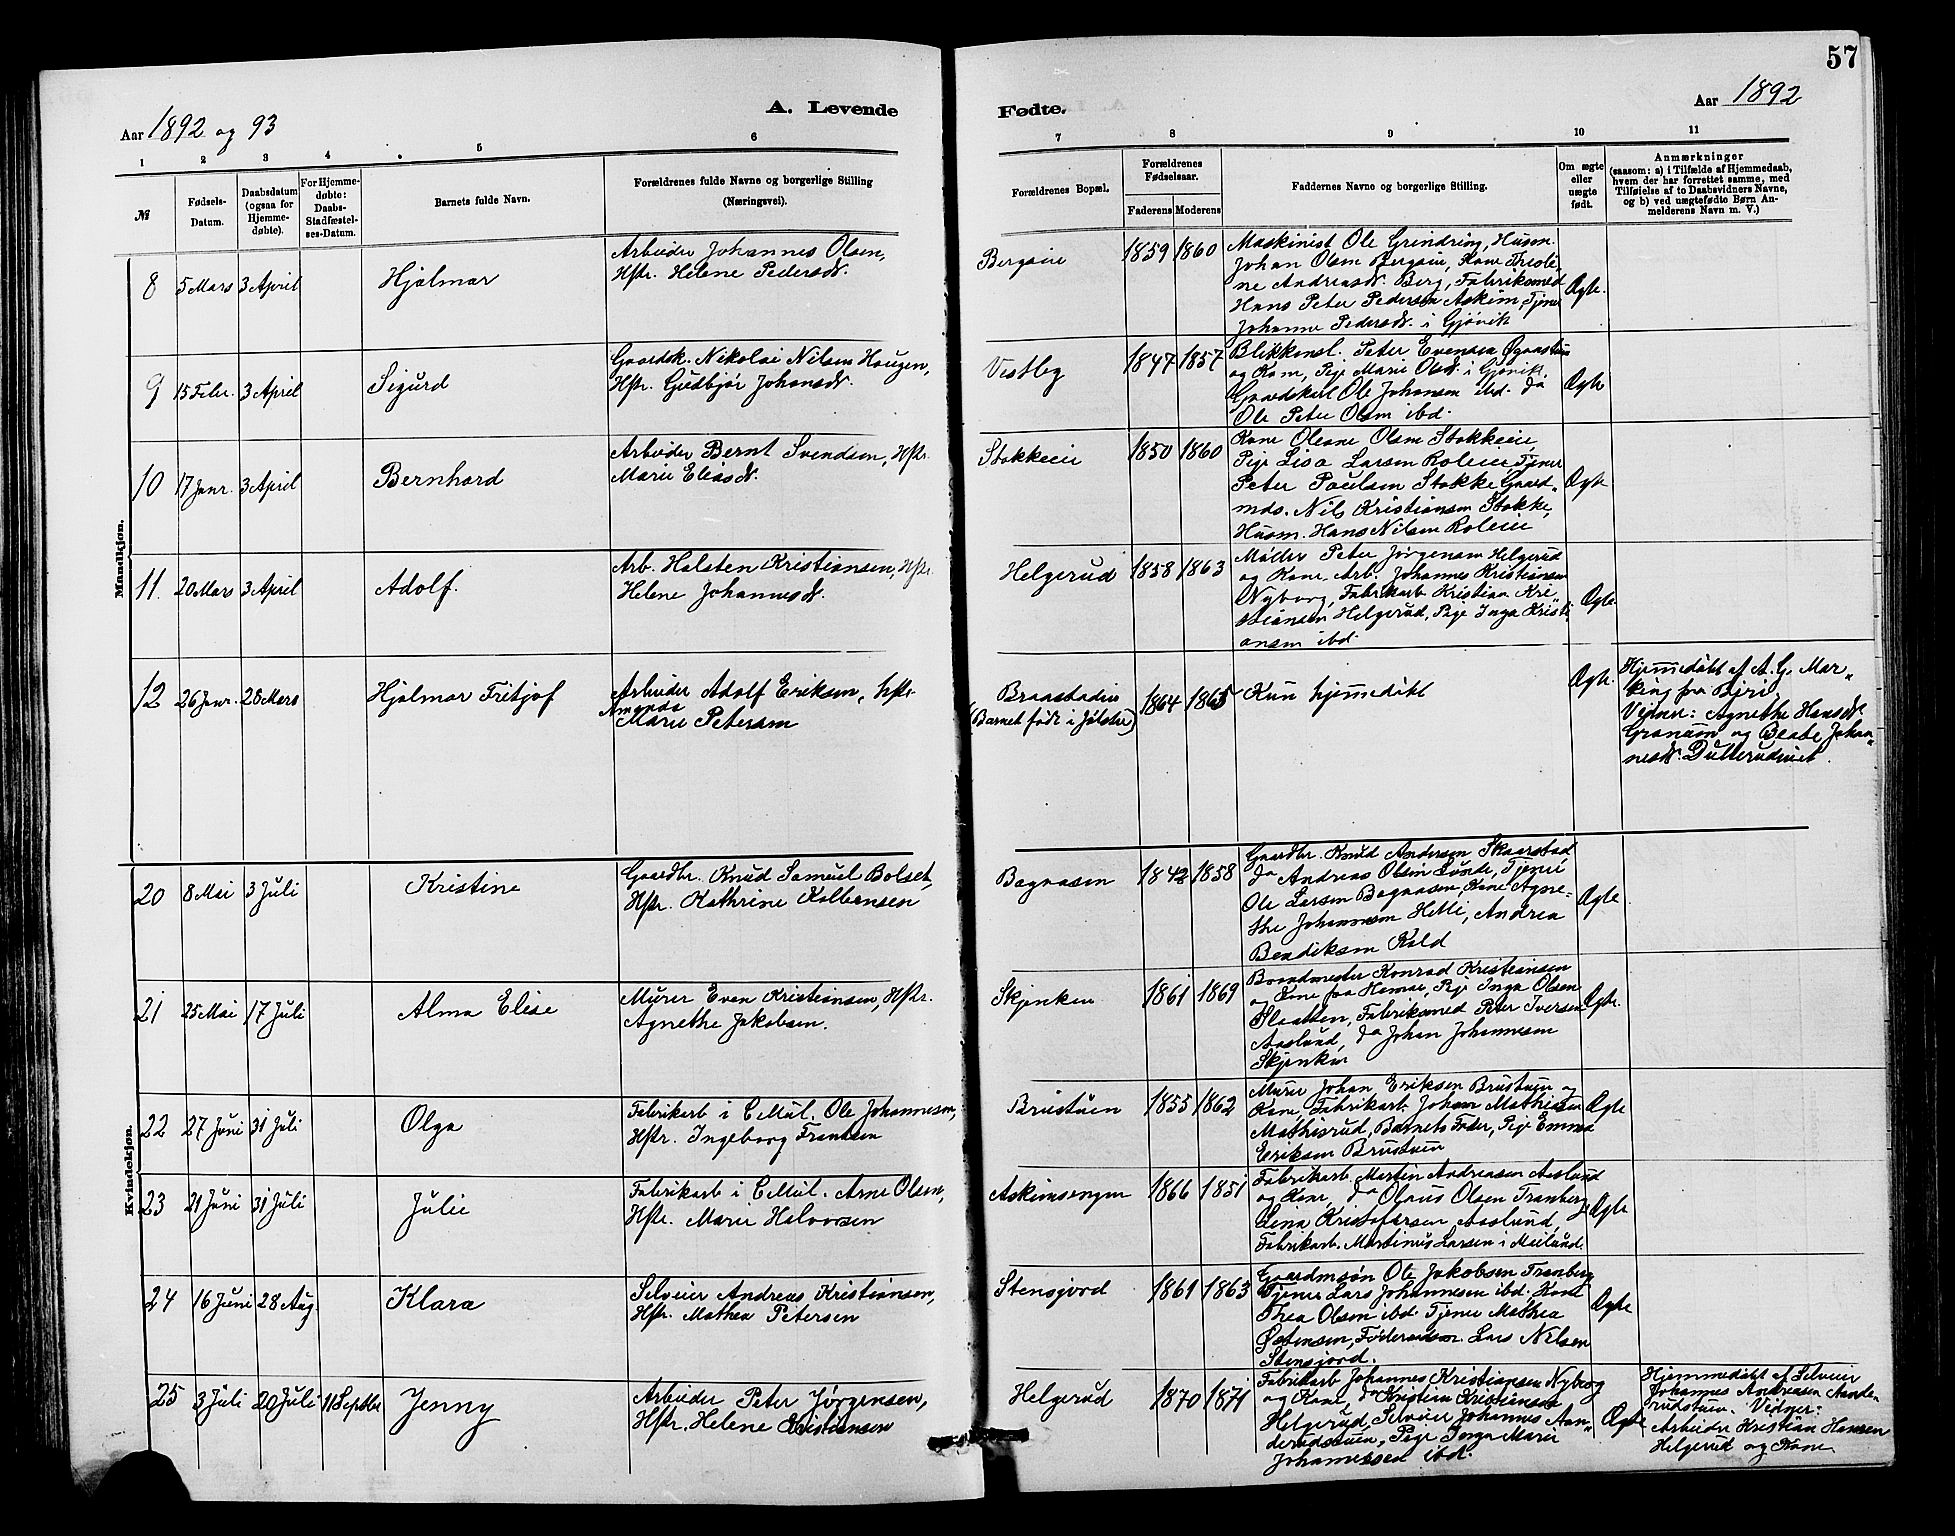 57
A. Levende
Fødte.
Aar 1892 og 93
Aar 1892
1 2 3 4 5 6 7 8 9 10 11
№
Fødsels-
Datum.
Daabsdatum
(ogsaa for
Hjemme-
døbte).
For Hjemme-
døbte:
Daabs-
Stadfæstel-
ses-Datum.
Barnets fulde Navn.
Forældrenes fulde Navne og borgerlige Stilling
(Næringsvei).
Forældrenes Bopæl.
Forældrenes
Fødselsaar.
Faderens Moderens
Faddernes Navne og borgerlige Stilling.
Om ægte
eller
uægte
født.
Anmærkninger
(saasom: a) i Tilfælde af Hjemmedaab,
hvem der har forrettet samme, med
Tilføielse af to Daabsvidners Navne,
og b) ved uægtefødte Børn An-
melderens Navn m. V.)
Mandkjøn.
8 5 Mars 3 April Hjalmar
Arbeider Johannes Olsen,
Hstr. Helene Pedersdr.
Bergseie 1859 1860
Maskinist Ole Grindring, Husm.
Johan Olsen Bergseie, Kone Trode
ne Andreasdr. Berg, Fabrikarbd
Hans Peter Pedersen Askim, Tjener
Johanne Pedersdr. i Gjøvik
Ægte.
9 15 Febr. 3 April Sigurd
Gaardsk. Nikolai Nilsen Haugen,
Hstr. Gudbjør Johansdr.
Vestby 1847 1857
Blikkensl. Peter Evensen
og Kone, Pige Marie Olsdr. i Gjøvik.
Gaardskarl Ole Johansen ibd. do
Ole Peter Olsen ibd.
Ægte
10 17 Janr. 3 April Bernhard
Arbeider Bernt Svendsen, Hstr.
Marie Eliasdr.
Stokkeeie 1850 1860
Kone Oleane Olsen Stokkeeie,
Pige Lisa Larsen Roleeie, Tjener
Peter Poulsen Stokke, Gaard-
mds. Nils Kristiansen Stokke,
Husm. Hans Nilsen Roleeie
Ægte
11. 20 Mars 3 April Adolf.
Arb. Halsten Kristiansen, Hstr.
Helene Johannesdr.
Helgerud 1858 1863
Møller Peter Jørgensen Helgerud
og Kone, Arb. Johannes Kristiansen
Nyborg, Fabrikarb Kristian Kri-
stiansen Helgerud, Pige Inga Kristi
ansen ibd.
Ægte.
12 26 Janr. 28 Mars Hjalmar Fritjof
Arbeider Adolf Eriksen, Hstr.
Amanda
Marie Petersen
Braastadeie
(Barnet født i Jølster)
1864 1865 Kun hjemmedøbt
Ægte.
Hjemmedøbt af A. G. Mar-
king fra Biri.
Vidner: Agnethe Hansdr.
Granum og Beate Johan-
nesdr. Dullerudeiet.
Kvindekjøn.
20 8 Mai 3 Juli Kristine
Gaardbr. Knud Samuel Bolset,
Hstr. Kathrine Kolbensen
Bagaasen 1842 1858
Gaardbr. Knud Andersen Skaarstad
do Andreas Olsen Lunde, Tjener
Ole Larsen Bagaasen, Kone Agne-
the Johannesen Hetli, Andrea
Bendiksen Kald
Ægte
21 25 Mai 17 Juli Alma Elise
Murer Even Kristiansen, Hstr.
Agnethe Jakobsen.
Skjenken 1861 1869
Baadmester Konrad Kristiansen
og Kone fra Hamar, Pige Inga Olsen
Slaatten, Fabrikarbd Peter Iversen
Aaslund, do Johan Johannesen
Skjenken
Ægte.
22 27 Juni 31 Juli Olga
Fabrikarb i Cellul. Ole Johannesen,
Hstr. Ingeborg Frantsen
Brustuen 1855 1862
Murer Johan Eriksen Brustuen og
Kone, Fabrikarb. Johan Mathisen
Mathisrud, Barnets Fader, Pige Emma
Eriksen Brustuen
Ægte
23 21 Juni 31 Juli Julie
Fabrikarb i Cellul. Arne Olsen,
Hstr. Marie Halvorsen
Askimsengen 1866 1851
Fabrikarb Martin Andreasen Aaslund
og Kone, do Olaus Olsen Tranberg
Lina Kristofersen Aaslund,
Fabrikarb. Martinus Larsen i Meilund.
Ægte
24 16 Juni 28 Aug. Klara
Selveier Andreas Kristiansen,
Hstr. Mathea Petersen
Stensjord 1861 1863
Gaardmsøn Ole Jakobsen Tranberg
Tjener Lars Johannesen ibd. Kone
Thea Olsen ibd. Tjener Mathea
Østensen, Føderaadsm. Lars Nilsen
Stensjord.
Ægte
25 3 Juli 20 Juli 11 Septbr Jenny
Arbeider Peter Jørgensen,
Hstr. Helene Kristiansen
Helgerud 1870 1871
Fabrikarb Johannes Kristiansen Nyborg
og Kone, do Kristian Kristiansen
Helgerud, Selveier Johannes Aan-
derudstuen, Pige Inga Marie
Johannessen ibd.
Ægte
Hjemmedøbt af Selveier
Johannes Andreasen Aande-
rudstuen. Vidner:
Arbeider Kristian Hansen
Helgerud og Kone